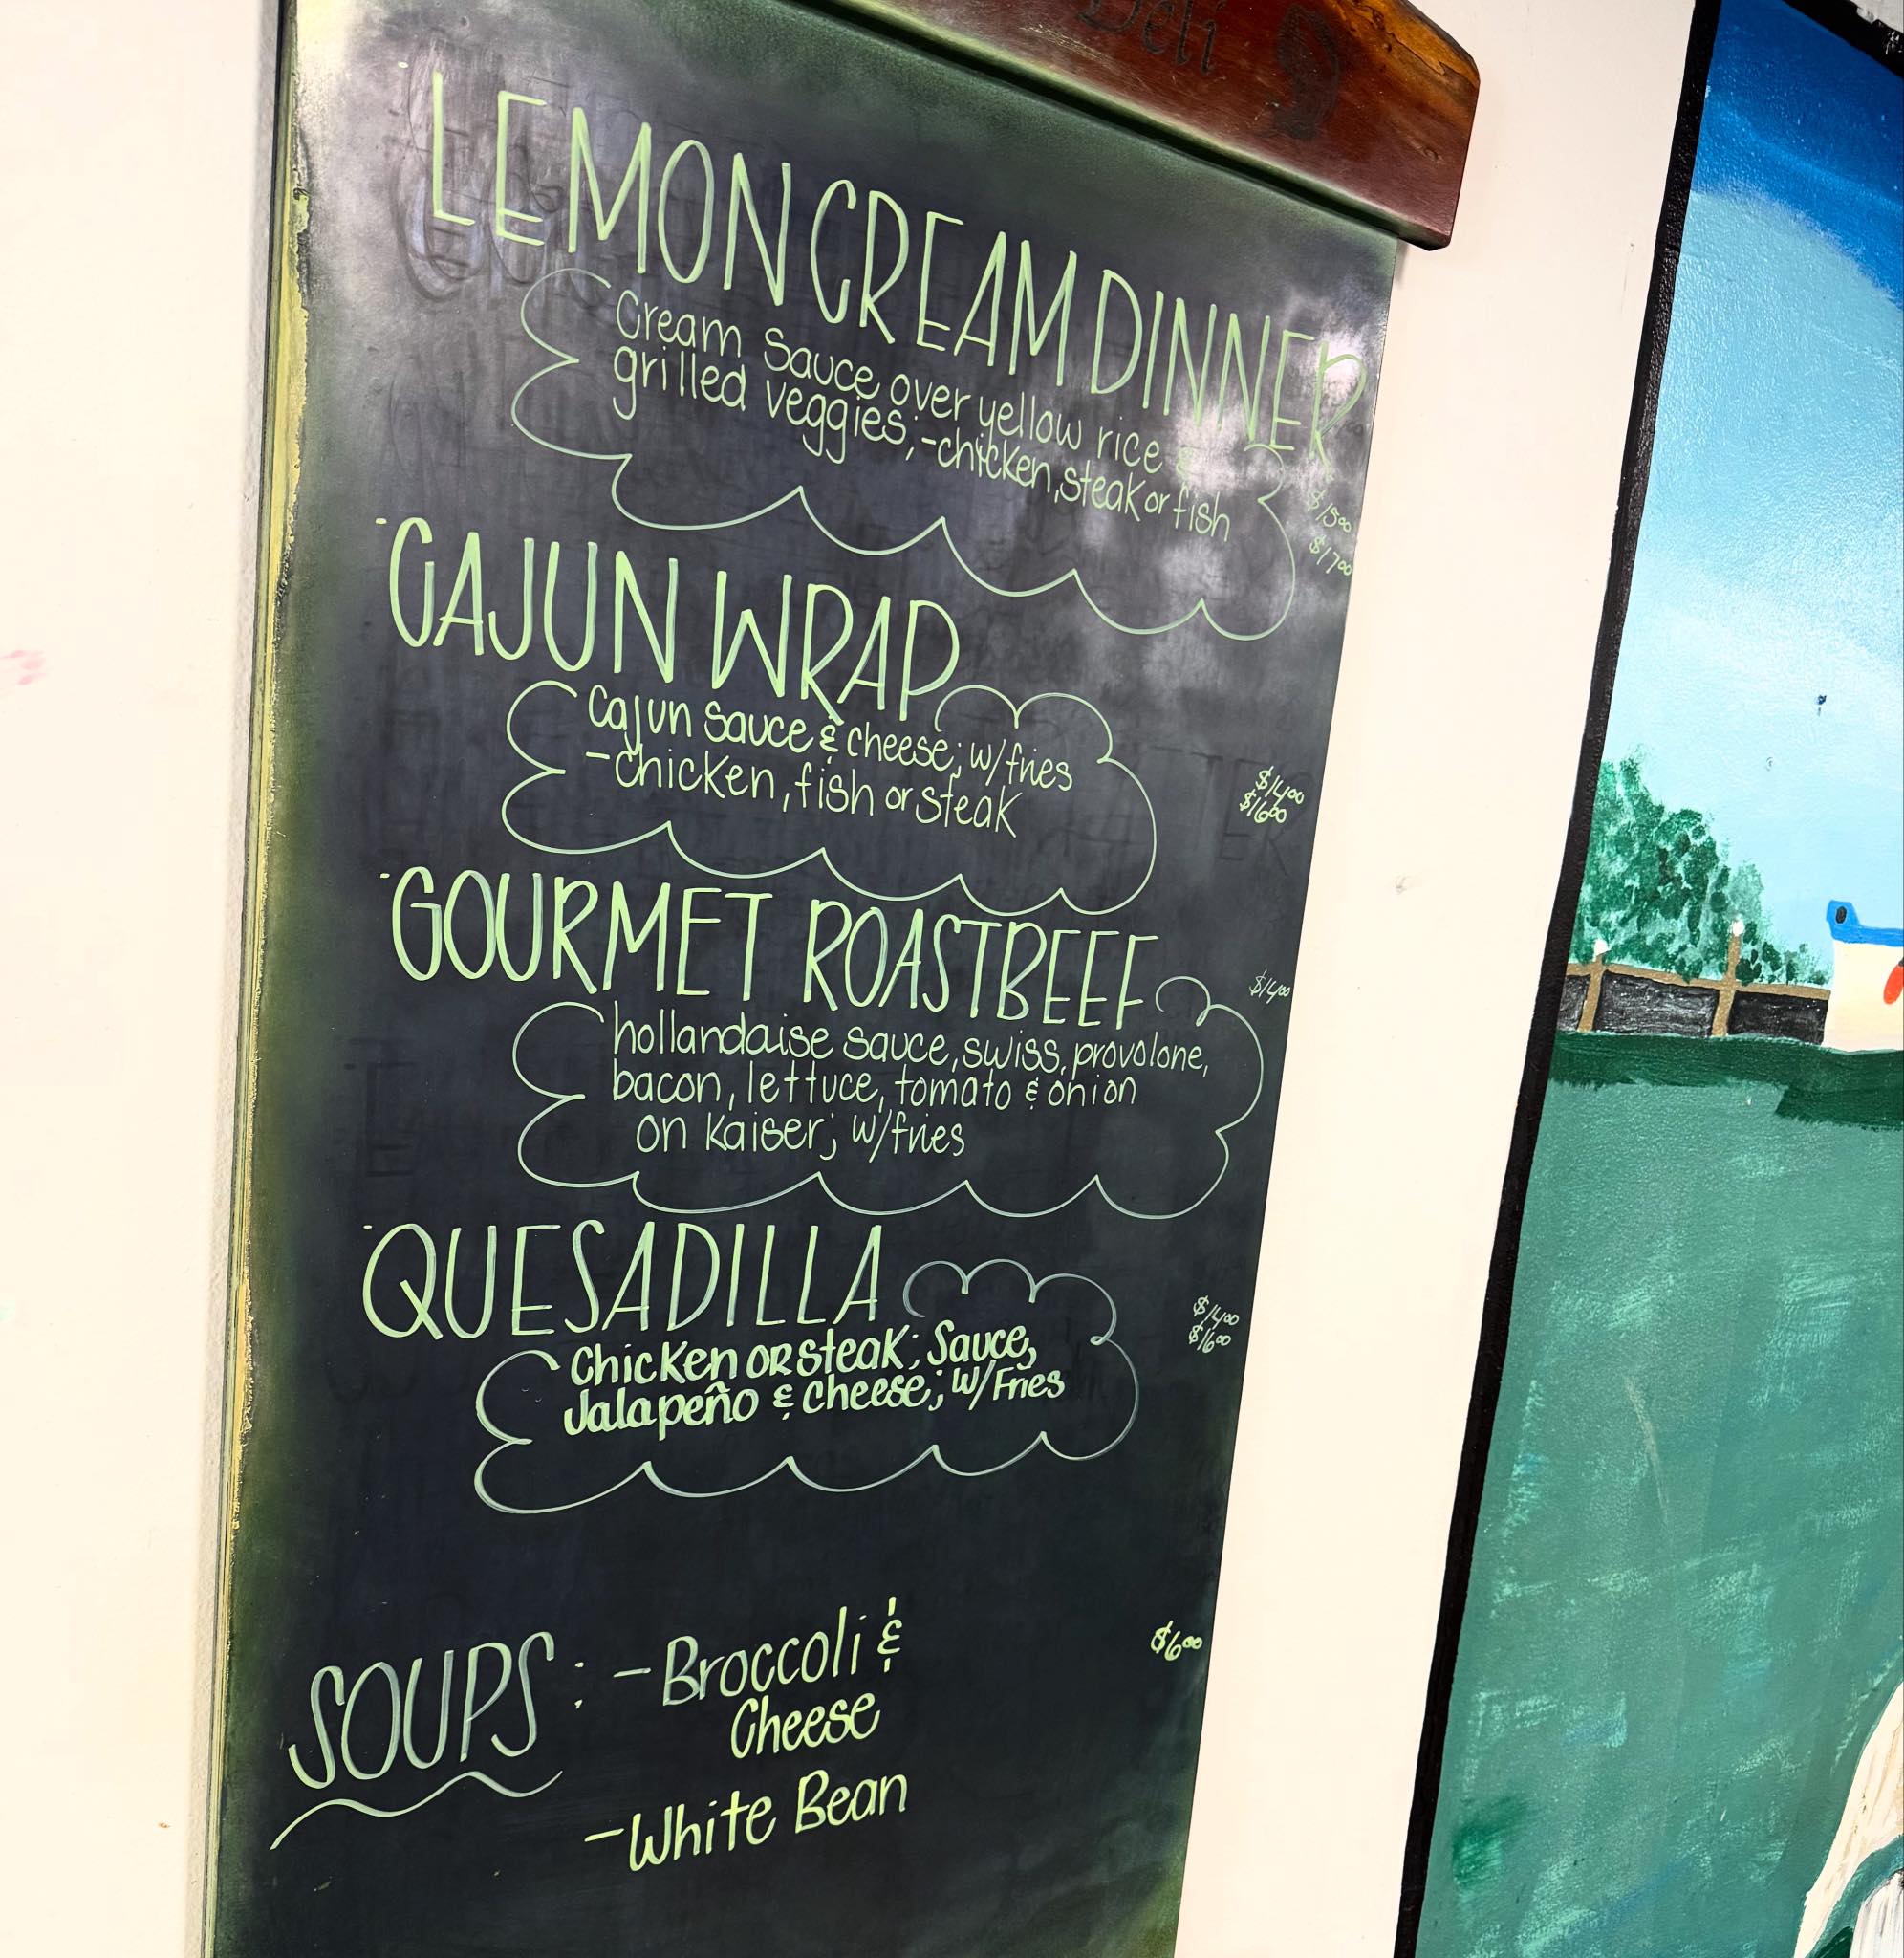 Deli
LEMON CREAM DINNER
Cream Sauce over yellow rice &
grilled veggies; -chicken, steak or fish
$15.00
$17.00
CAJUN WRAP
Cajun Sauce & cheese; w/fries
-chicken, fish or steak
$14.00
$16.00
GOURMET ROASTBEEF
$14.00
hollandaise sauce, swiss, provolone,
bacon, lettuce, tomato & onion
on Kaiser; w/fries
QUESADILLA
$14.00
$16.00
Chicken OR Steak; Sauce,
Jalapeño & Cheese; W/Fries
SOUPS: -Broccoli &
Cheese
$6.00
-White Bean